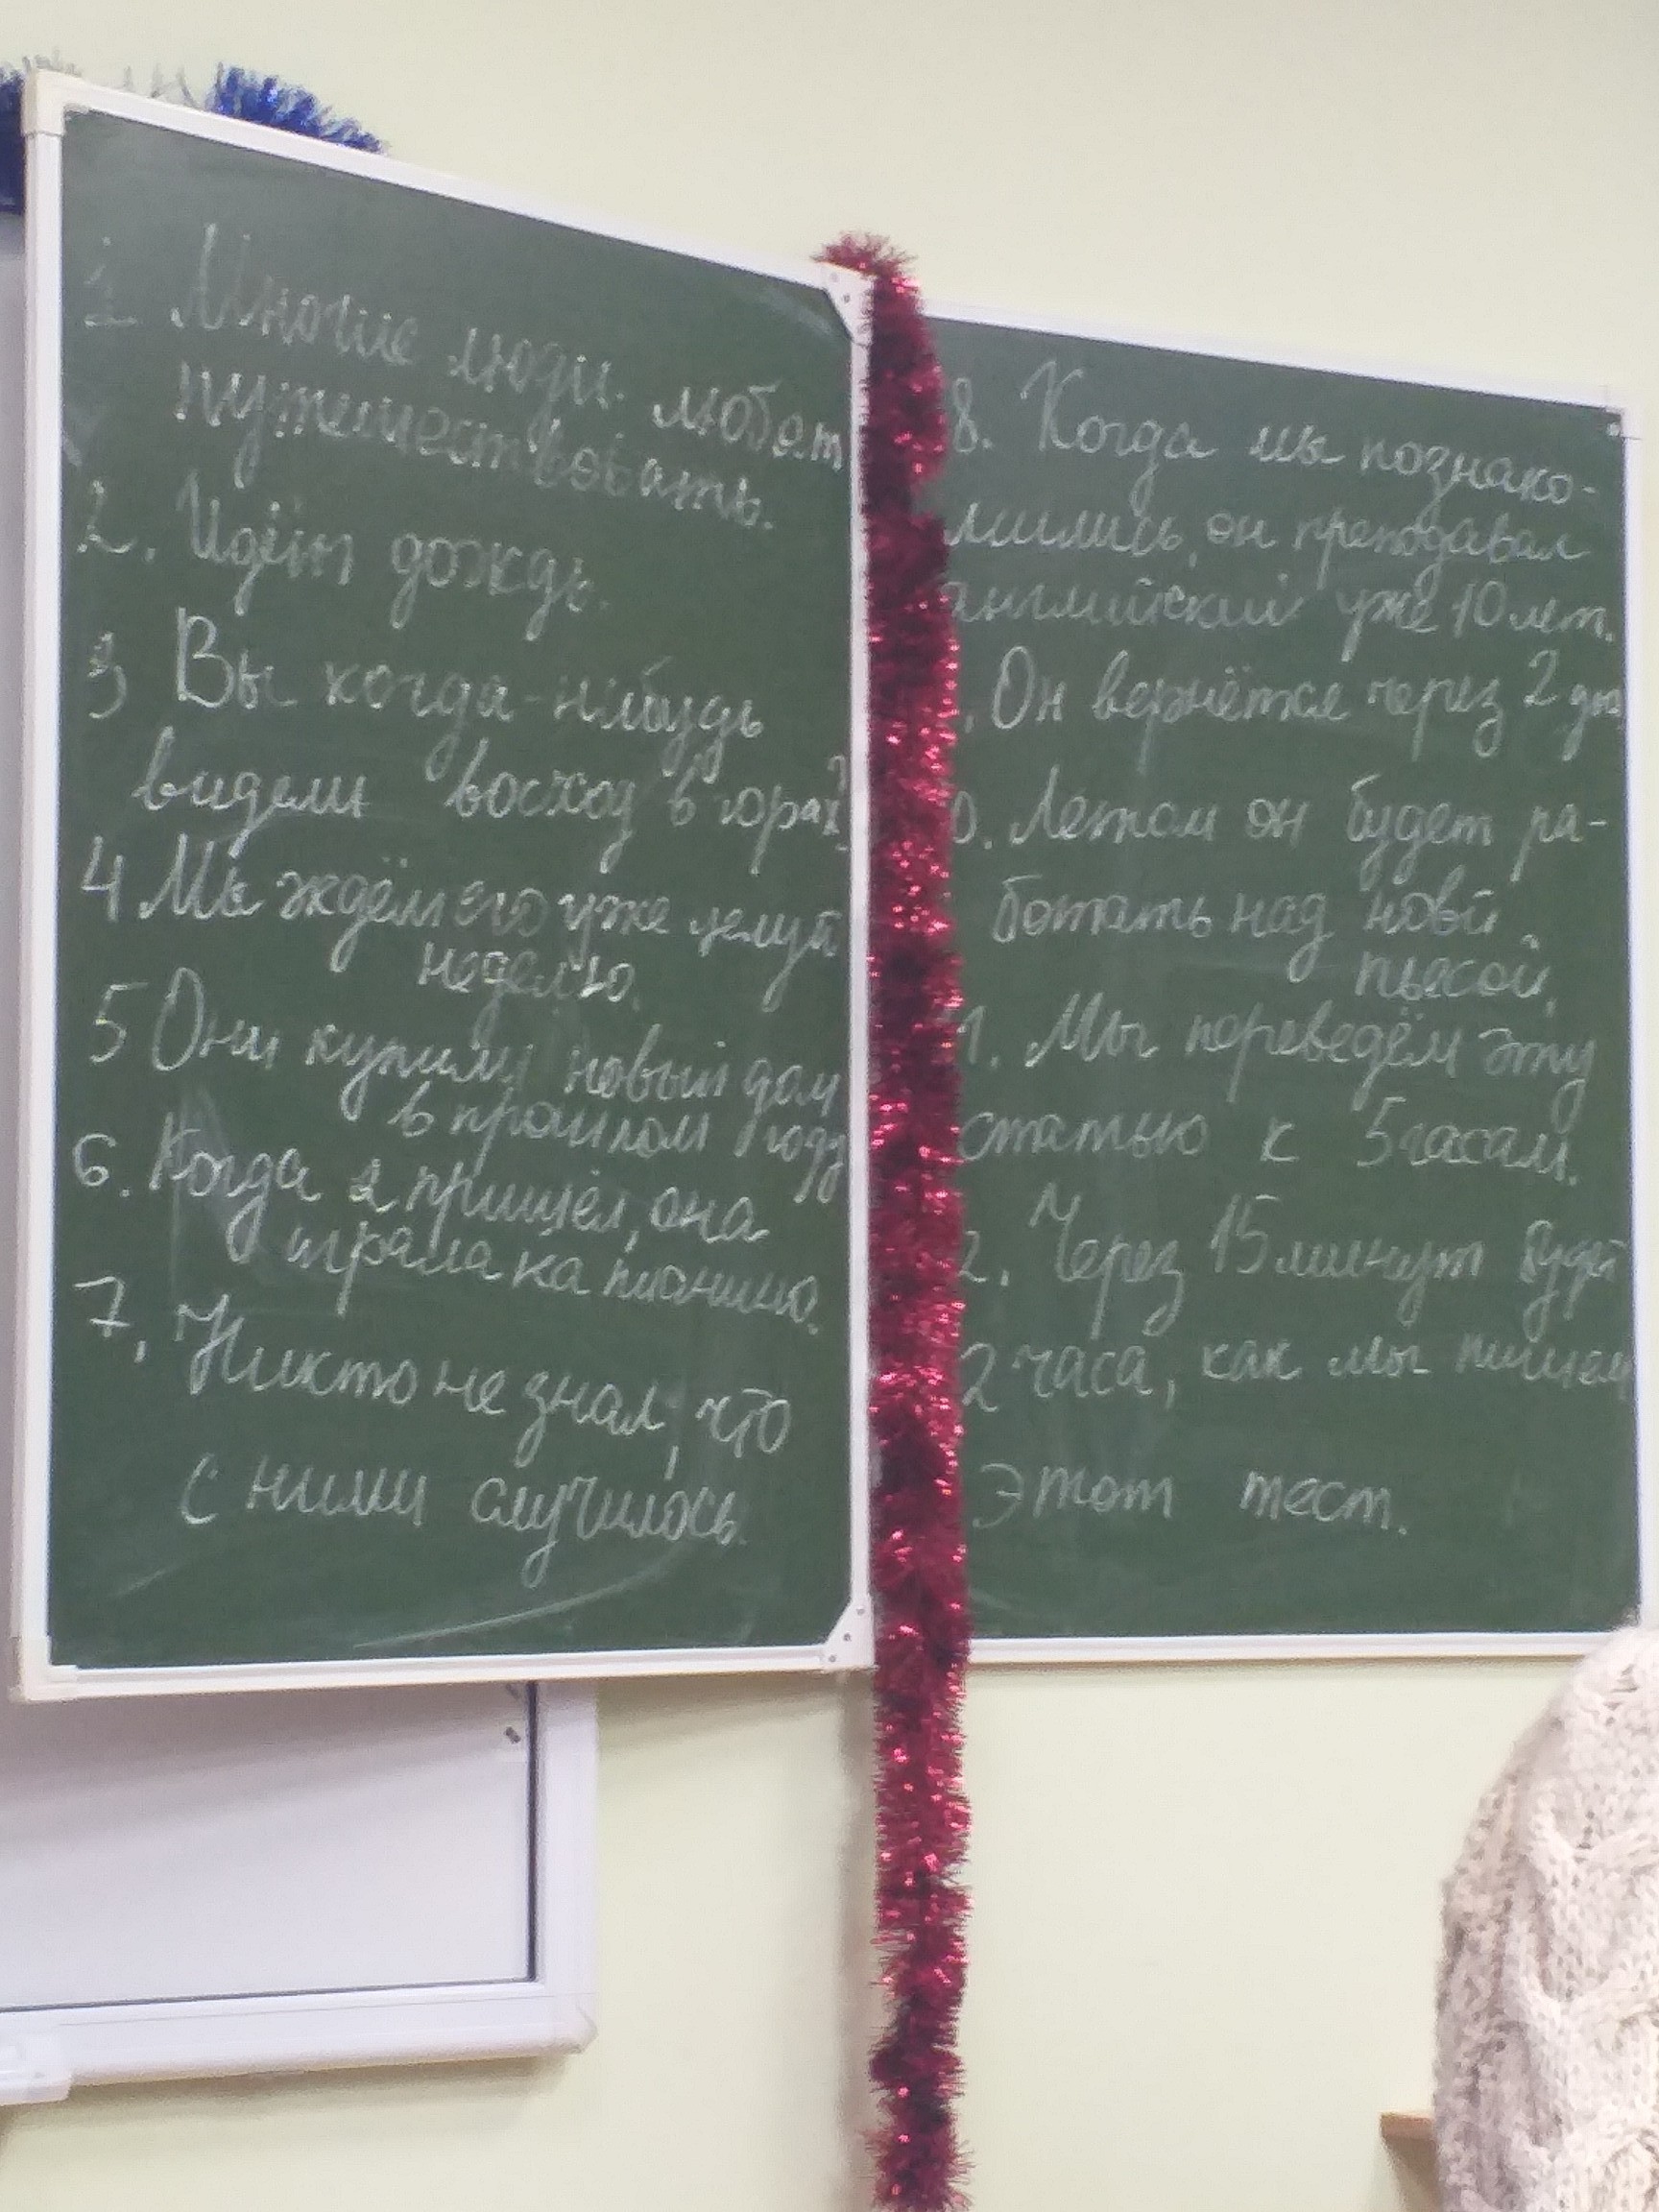 1 Многие люди любят
путешествовать.
2. Идёт дождь.
3 Вы когда-нибудь
видели восход в горах?
4 Мы ждём его уже целую
неделю.
5 Они купили новый дом
в прошлом году
6. Когда я пришёл, она
играла на пианино.
7. Никто не знал, что
с ними случилось.
8. Когда мы познако-
мились, он преподавал
английский уже 10 лет.
. Он вернётся через 2 дня
0. Летом он будет ра-
ботать над новой
пьесой.
1. Мы переведём эту
статью к 5 часам.
2. Через 15 минут будет
2 часа, как мы пишем
этот тест.